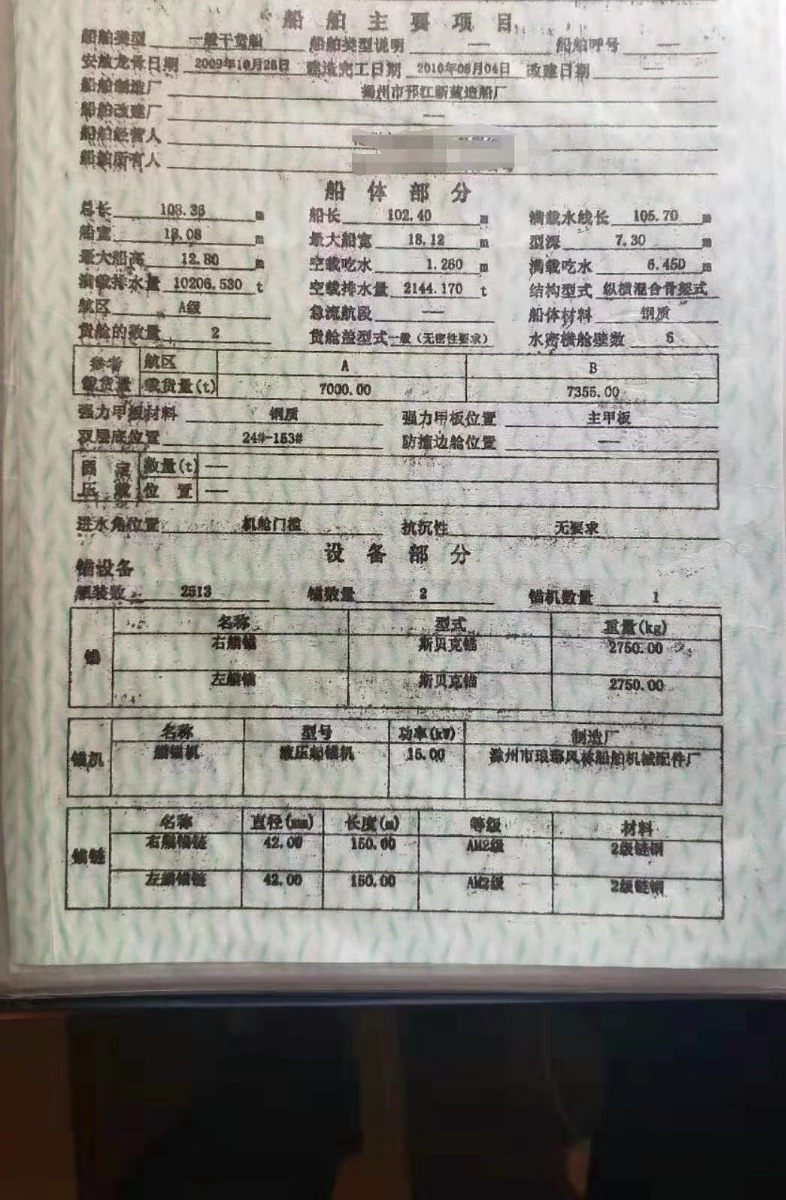 船舶主要项目
船舶类型 一般干货船 船舶类型说明 — 船舶呼号 —
安放龙骨日期 2009年10月28日 建造完工日期 2010年08月04日 改建日期 —
船舶制造厂 扬州市邗江新蓝造船厂
船舶改建厂 —
船舶经营人
船舶所有人
船体部分
总长 108.36 m 船长 102.40 m 满载水线长 105.70 m
船宽 18.08 m 最大船宽 18.12 m 型深 7.30 m
最大船高 12.80 m 空载吃水 1.260 m 满载吃水 6.450 m
满载排水量 10206.530 t 空载排水量 2144.170 t 结构型式 纵横混合骨架式
航区 A级 急流航段 — 船体材料 钢质
货舱的数量 2 货舱盖型式 一般(无密性要求) 水密横舱壁数 6
参考 航区 A B
载货量 载货量(t) 7000.00 7355.00
强力甲板材料 钢质 强力甲板位置 主甲板
双层底位置 24#-153# 防撞边舱位置 —
固定 数量(t) —
压载 位置 —
进水角位置 机舱门槛 抗沉性 无要求
设备部分
锚设备
舾装数 2513 锚数量 2 锚机数量 1
名称 型式 重量(kg)
锚 右艏锚 斯贝克锚 2750.00
左艏锚 斯贝克锚 2750.00
名称 型号 功率(kW) 制造厂
锚机 艏锚机 液压起锚机 15.00 滁州市琅琊风林船舶机械配件厂
名称 直径(mm) 长度(m) 等级 材料
锚链 右艏锚链 42.00 150.00 AM2级 2级链钢
左艏锚链 42.00 150.00 AM2级 2级链钢